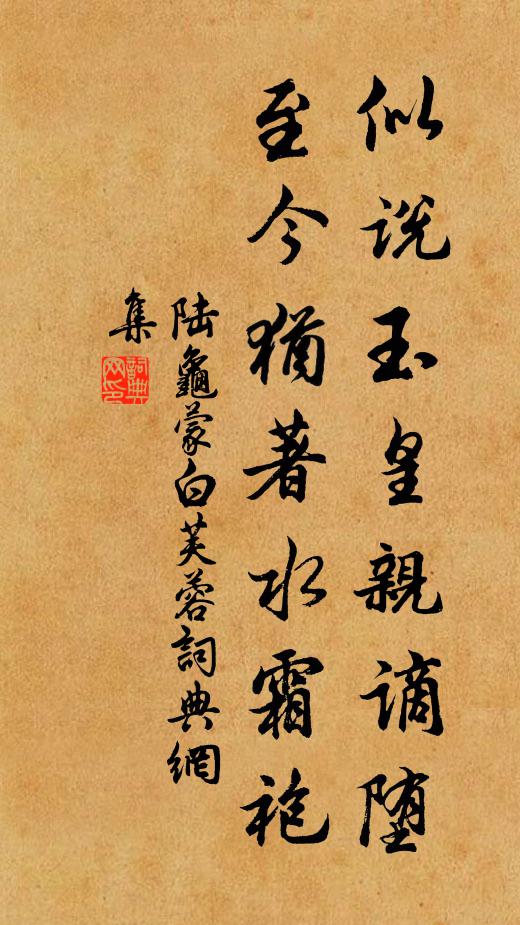 似说玉皇親谪堕
至今猶著水霜袍
陆龜蒙白芙蓉詞典網
集
詞典网印